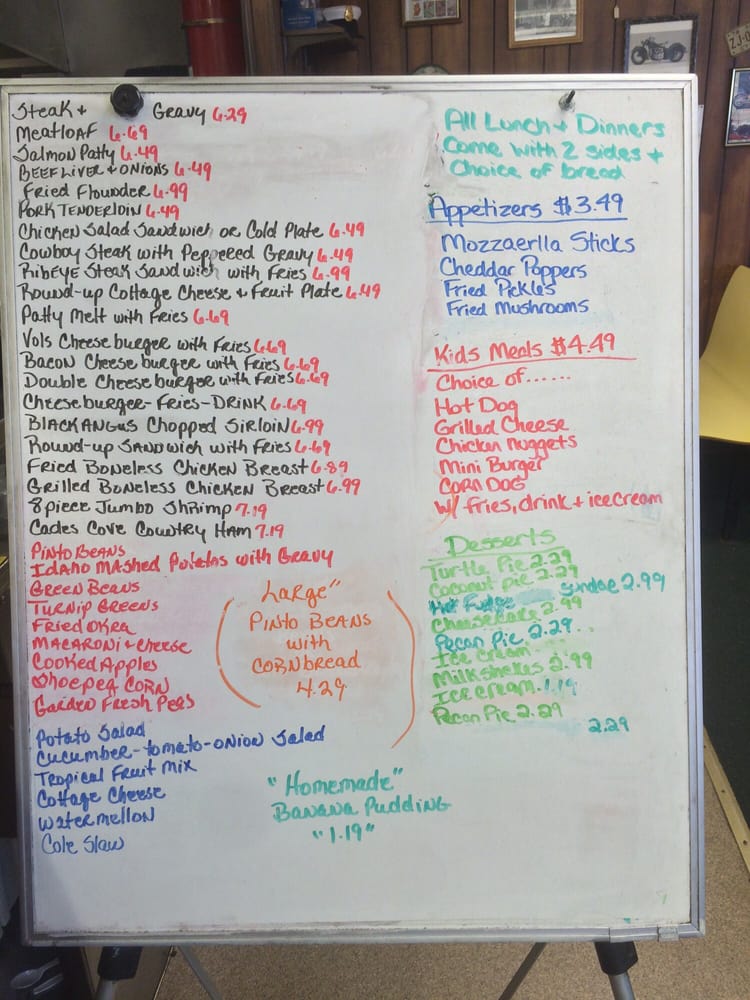 Steak + Gravy 6.29
Meatloaf 6.69
Salmon Patty 6.49
Beef Liver + Onions 6.49
Fried Flounder 6.99
Pork Tenderloin 6.49
Chicken Salad Sandwich or Cold Plate 6.49
Cowboy Steak with Peppered Gravy 6.49
Ribeye Steak Sandwich with Fries 6.99
Round-up Cottage Cheese + Fruit Plate 6.49
Patty Melt with Fries 6.69
Vols Cheeseburger with Fries 6.69
Bacon Cheeseburger with Fries 6.69
Double Cheeseburger with Fries 6.69
Cheeseburger-Fries-DRINK 6.69
Black Angus Chopped Sirloin 6.99
Round-up Sandwich with Fries 6.69
Fried Boneless Chicken Breast 6.89
Grilled Boneless Chicken Breast 6.99
8 piece Jumbo Shrimp 7.19
Cades Cove Country Ham 7.19
Pinto Beans
Idaho Mashed Potatos with Gravy
Green Beans
Turnip Greens
Fried Okra
Macaroni + Cheese
Cooked Apples
Shoepeg Corn
Garden Fresh Peas
Potato Salad
Cucumber-tomato-onion Salad
Tropical Fruit Mix
Cottage Cheese
Watermellon
Cole Slaw
Large"
Pinto Beans
with
Cornbread
4.29
"Homemade"
Banana Pudding
"1.19"
All Lunch + Dinners
Come with 2 sides +
Choice of bread
Appetizers $3.49
Mozzaerlla Sticks
Cheddar Poppers
Fried Pickles
Fried Mushrooms
Kids Meals $4.49
Choice of......
Hot Dog
Grilled Cheese
Chicken Nuggets
Mini Burger
Corn Dog
w/ fries, drink + ice cream
Desserts
Turtle Pie 2.29
Coconut pie 2.29
Hot Fudge Sundae 2.99
Cheesecake 2.99
Pecan Pie 2.29
Ice cream
Milkshakes 2.99
Ice cream 1.19
Pecan Pie 2.29
2.29